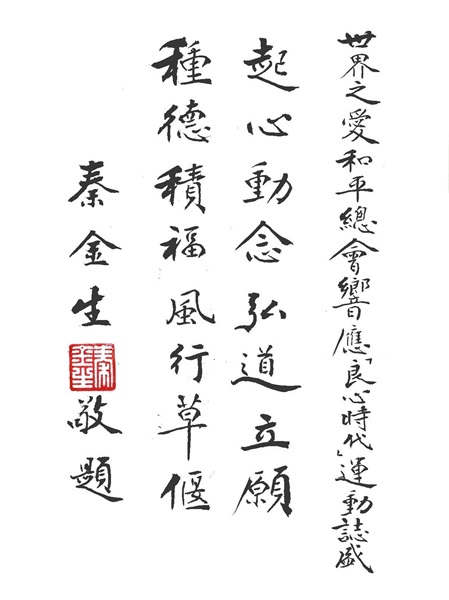 世界之愛和平總會響應「良心時代」運動誌盛
起心動念弘道立願
種德積福風行草偃
秦金生
秦金生
敬題